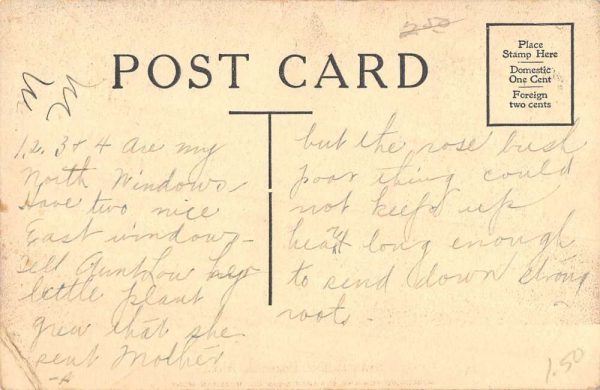 2.50
POST CARD
Place
Stamp Here
Domestic
One Cent
Foreign
two cents
1, 2, 3 & 4 are my
North Windows
Have two nice
East windows -
Tell Aunt Lou her
little plant
grew that she
sent Mother
but the rose bush
poor thing could
not keep up
heart long enough
to send down strong
roots.
1.50